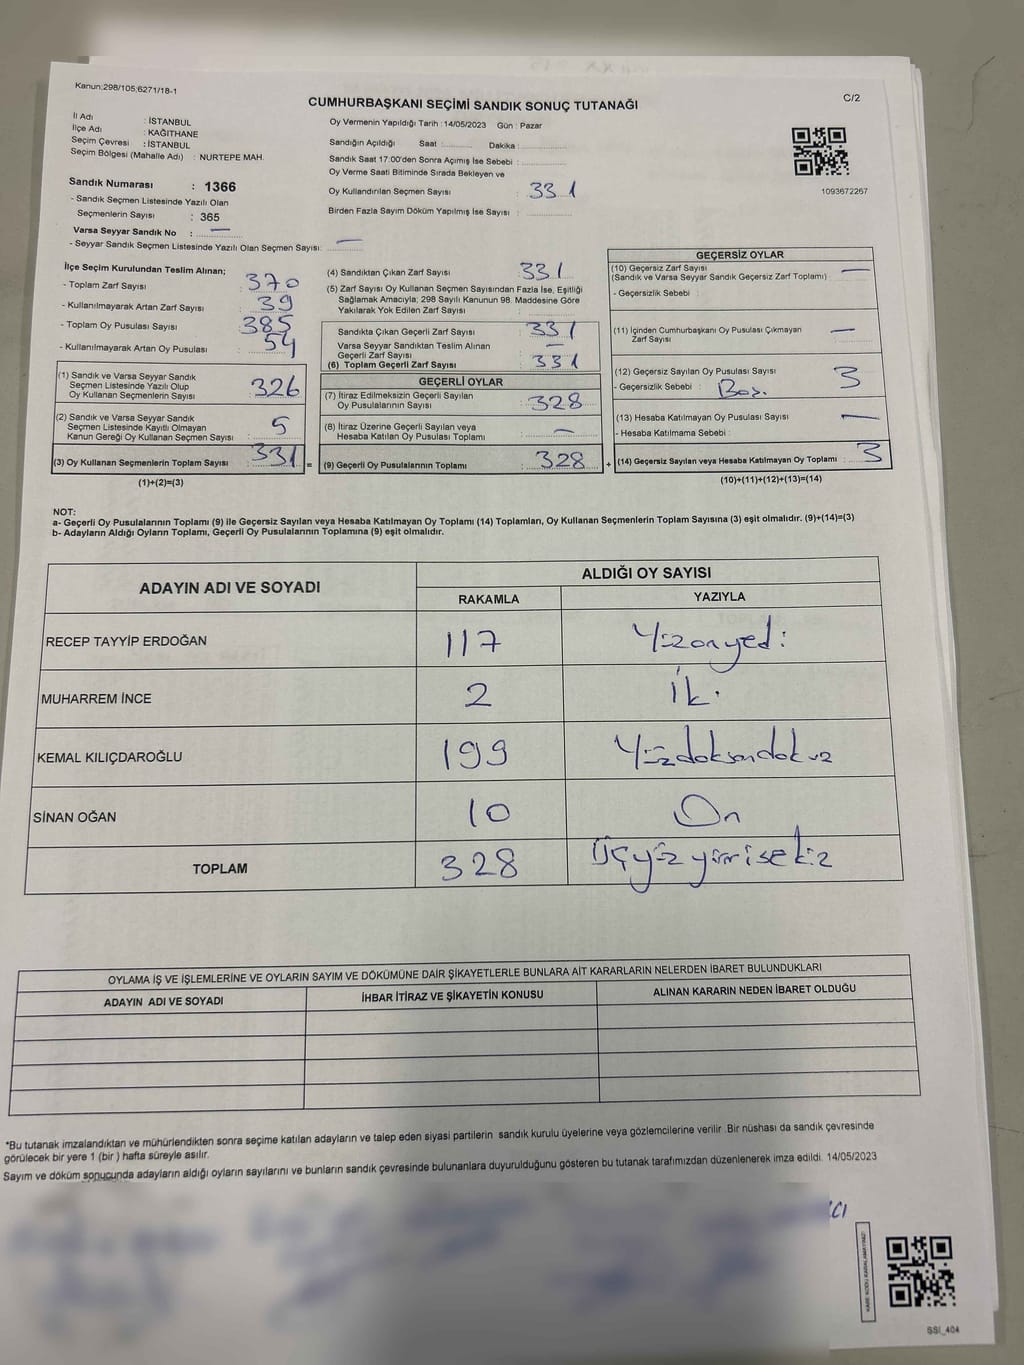 Kanun:298/105;6271/18-1
C/2
CUMHURBAŞKANI SEÇİMİ SANDIK SONUÇ TUTANAĞI
İl Adı : İSTANBUL
İlçe Adı : KAĞITHANE
Seçim Çevresi : İSTANBUL
Seçim Bölgesi (Mahalle Adı) : NURTEPE MAH.
Sandık Numarası : 1366
- Sandık Seçmen Listesinde Yazılı Olan
Seçmenlerin Sayısı : 365
Varsa Seyyar Sandık No : —
- Seyyar Sandık Seçmen Listesinde Yazılı Olan Seçmen Sayısı: —
Oy Vermenin Yapıldığı Tarih : 14/05/2023 Gün : Pazar
Sandığın Açıldığı Saat : Dakika :
Sandık Saat 17:00'den Sonra Açımış İse Sebebi :
Oy Verme Saati Bitiminde Sırada Bekleyen ve
Oy Kullandırılan Seçmen Sayısı : 331
Birden Fazla Sayım Döküm Yapılmış İse Sayısı :
1093672267
İlçe Seçim Kurulundan Teslim Alınan;
- Toplam Zarf Sayısı : 370
- Kullanılmayarak Artan Zarf Sayısı : 39
- Toplam Oy Pusulası Sayısı : 385
- Kullanılmayarak Artan Oy Pusulası : 54
(1) Sandık ve Varsa Seyyar Sandık
Seçmen Listesinde Yazılı Olup
Oy Kullanan Seçmenlerin Sayısı : 326
(2) Sandık ve Varsa Seyyar Sandık
Seçmen Listesinde Kayıtlı Olmayan
Kanun Gereği Oy Kullanan Seçmen Sayısı : 5
(3) Oy Kullanan Seçmenlerin Toplam Sayısı : 331 =
(1)+(2)=(3)
(4) Sandıktan Çıkan Zarf Sayısı : 331
(5) Zarf Sayısı Oy Kullanan Seçmen Sayısından Fazla İse, Eşitliği
Sağlamak Amacıyla; 298 Sayılı Kanunun 98. Maddesine Göre
Yakılarak Yok Edilen Zarf Sayısı :
Sandıkta Çıkan Geçerli Zarf Sayısı : 331
Varsa Seyyar Sandıktan Teslim Alınan
Geçerli Zarf Sayısı : —
(6) Toplam Geçerli Zarf Sayısı : 331
GEÇERLİ OYLAR
(7) İtiraz Edilmeksizin Geçerli Sayılan
Oy Pusulalarının Sayısı : 328
(8) İtiraz Üzerine Geçerli Sayılan veya
Hesaba Katılan Oy Pusulası Toplamı : —
(9) Geçerli Oy Pusulalarının Toplamı : 328 +
GEÇERSİZ OYLAR
(10) Geçersiz Zarf Sayısı : —
(Sandık ve Varsa Seyyar Sandık Geçersiz Zarf Toplamı)
- Geçersizlik Sebebi :
(11) İçinden Cumhurbaşkanı Oy Pusulası Çıkmayan
Zarf Sayısı : —
(12) Geçersiz Sayılan Oy Pusulası Sayısı : 3
- Geçersizlik Sebebi : Boş.
(13) Hesaba Katılmayan Oy Pusulası Sayısı : —
- Hesaba Katılmama Sebebi :
(14) Geçersiz Sayılan veya Hesaba Katılmayan Oy Toplamı : 3
(10)+(11)+(12)+(13)=(14)
NOT:
a- Geçerli Oy Pusulalarının Toplamı (9) ile Geçersiz Sayılan veya Hesaba Katılmayan Oy Toplamı (14) Toplamları, Oy Kullanan Seçmenlerin Toplam Sayısına (3) eşit olmalıdır. (9)+(14)=(3)
b- Adayların Aldığı Oyların Toplamı, Geçerli Oy Pusulalarının Toplamına (9) eşit olmalıdır.
ADAYIN ADI VE SOYADI
ALDIĞI OY SAYISI
RAKAMLA YAZIYLA
RECEP TAYYİP ERDOĞAN 117 Yüzonyedi
MUHARREM İNCE 2 İki
KEMAL KILIÇDAROĞLU 199 Yüzdoksandokuz
SİNAN OĞAN 10 On
TOPLAM 328 Üçyüzyirmisekiz
OYLAMA İŞ VE İŞLEMLERİNE VE OYLARIN SAYIM VE DÖKÜMÜNE DAİR ŞİKAYETLERLE BUNLARA AİT KARARLARIN NELERDEN İBARET BULUNDUKLARI
ADAYIN ADI VE SOYADI İHBAR İTİRAZ VE ŞİKAYETİN KONUSU ALINAN KARARIN NEDEN İBARET OLDUĞU
*Bu tutanak imzalandıktan ve mühürlendikten sonra seçime katılan adayların ve talep eden siyasi partilerin sandık kurulu üyelerine veya gözlemcilerine verilir .Bir nüshası da sandık çevresinde
görülecek bir yere 1 (bir ) hafta süreyle asılır.
Sayım ve döküm sonucunda adayların aldığı oyların sayılarını ve bunların sandık çevresinde bulunanlara duyurulduğunu gösteren bu tutanak tarafımızdan düzenlenerek imza edildi. 14/05/2023
KARE KODU KARALAMAYINIZ!
SSI_404